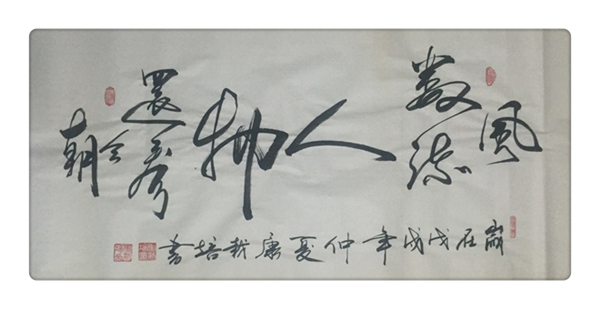 数風流人物還看今朝
歲在戊戌年仲夏康新培書